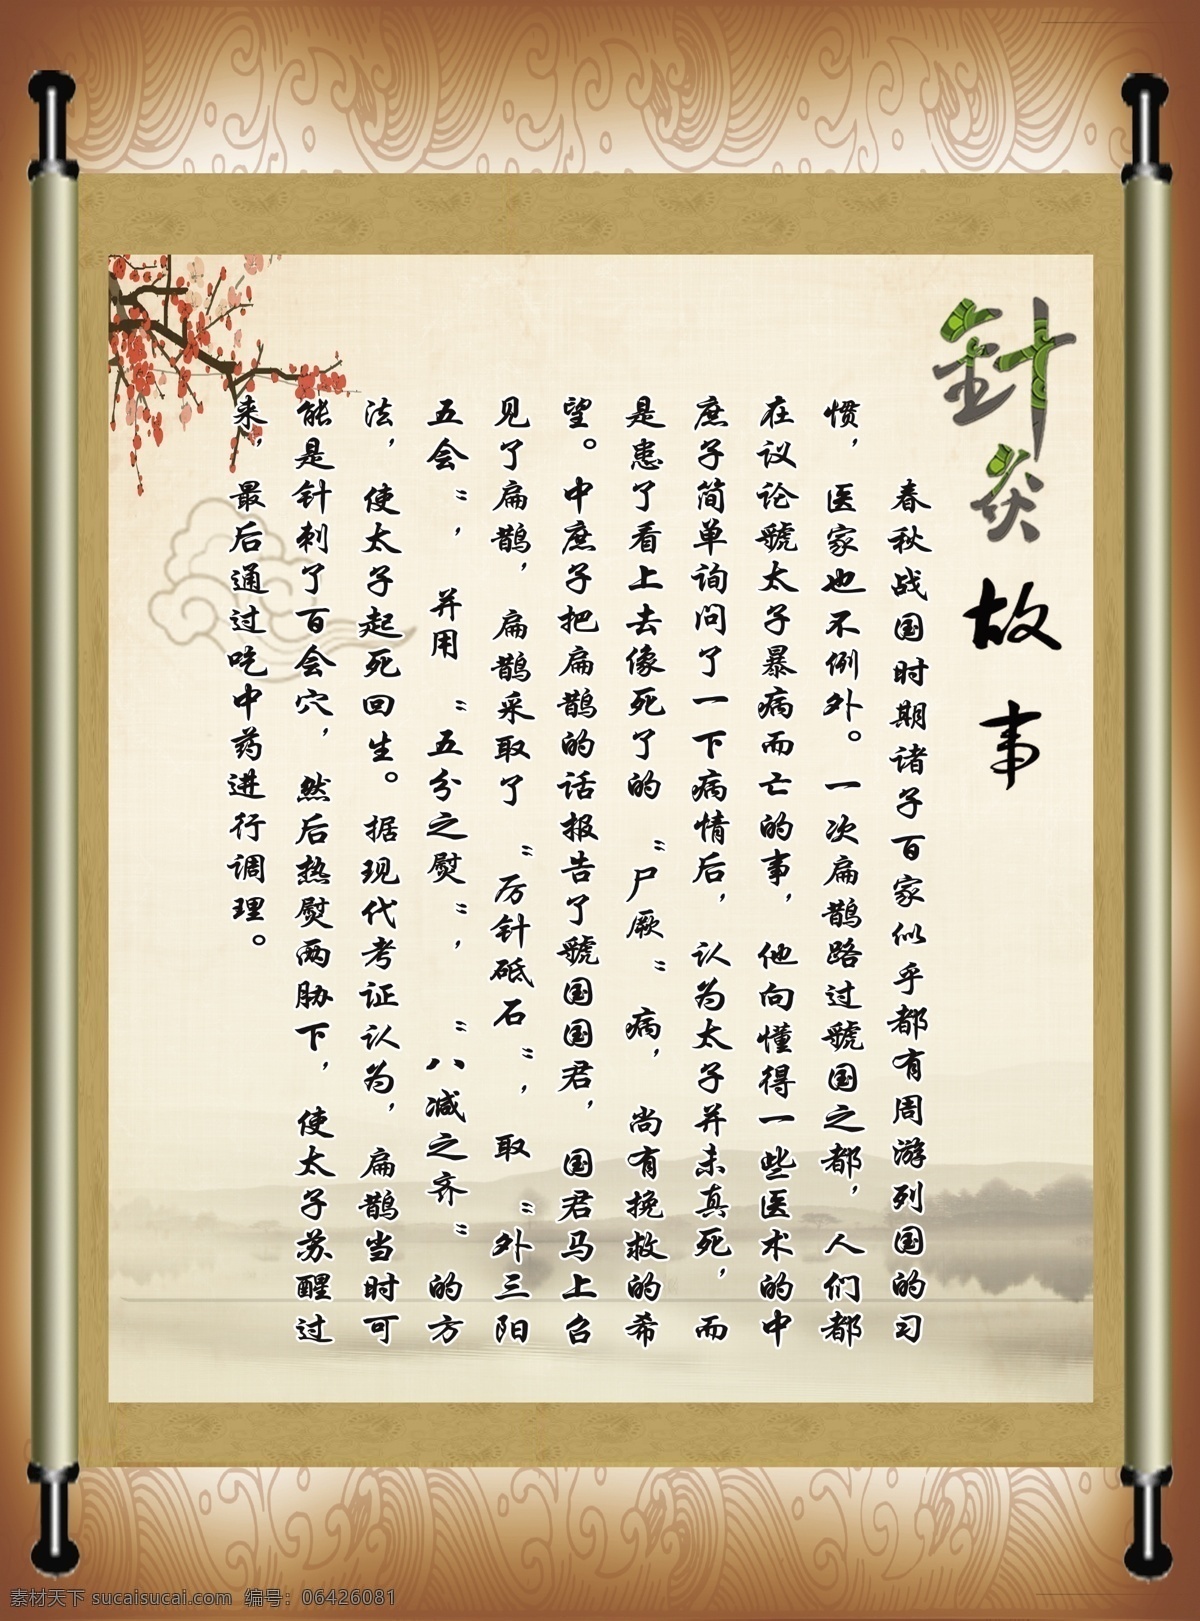 針灸故事
春秋战国时期诸子百家似乎都有周游列国的习
惯，医家也不例外。一次扁鹊路过虢国之都，人们都
在议论虢太子暴病而亡的事，他向懂得一些医术的中
庶子简单询问了一下病情后，认为太子并未真死，而
是患了看上去像死了的“尸厥”病，尚有挽救的希
望。中庶子把扁鹊的话报告了虢国国君，国君马上召
见了扁鹊，扁鹊采取了“厉针砥石”，取“外三阳
五会”，并用“五分之熨”，“八减之齐”的方
法，使太子起死回生。据现代考证认为，扁鹊当时可
能是针刺了百会穴，然后热熨两胁下，使太子苏醒过
来，最后通过吃中药进行调理。
素材天下 sucaisucai.com 编号：06426081